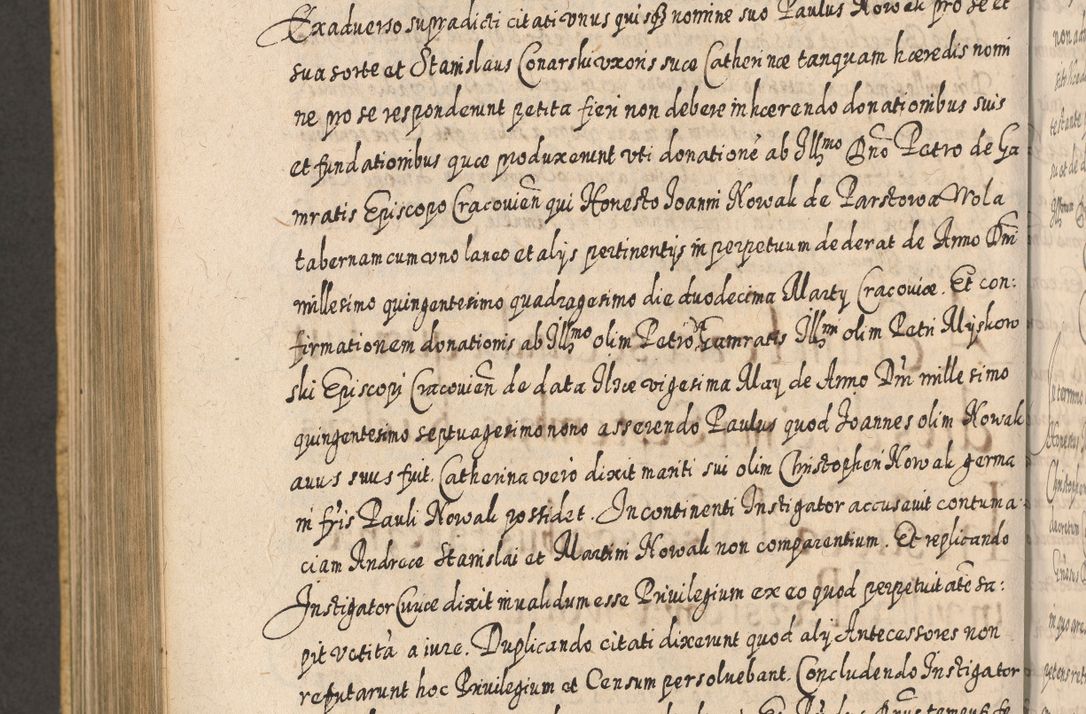 Exadverso supradicti citati vnus quisq nomine suo Paulus Nowak pro se et
sua sorte et Stanislaus Conarski vxoris suæ Catherinæ tanquam hæredis nomi
ne pro se responderunt petita fieri non debere inhærendo donationibus suis
et fundationibus quæ produxerunt vti donationé ab Illmo Dno Petro de Ga
mratis Episcopo Cracovień qui Honesto Joanni Nowak de Parstowa Wola
tabernam cum vno laneo et alijs pertinentijs in perpetuum dederat de Anno Dni
millesimo quingentesimo quadragesimo die duodecima Marty Cracoviæ. Et con:
firmationem donationis ab Illmo olim Petro Gamratis Illmi olim Petri Myskow
ski Episcopi Cracovień de data Ilzæ vigesima May de Anno Dni millesimo
quingentesimo septuagesimo nono asserendo Paulus quod Joannes olim Nowak
auus suus fuit. Catherina vero dixit mariti sui olim Christopheri Nowak germa
ni fris Pauli Nowak possidet. Incontinenti Instigator accusauit contuma:
ciam Andreæ Stanislai et Martini Nowak non comparentium. Et replicando
Instigator Curiæ dixit inualidum esse Priuilegium ex eo quod perpetuitaté sa:
pit vetitá a iure. Duplicando citati dixerunt quod alij Antecessores non
refutarunt hoc Priuilegium et Censum persoluebant. Concludendo Instigator